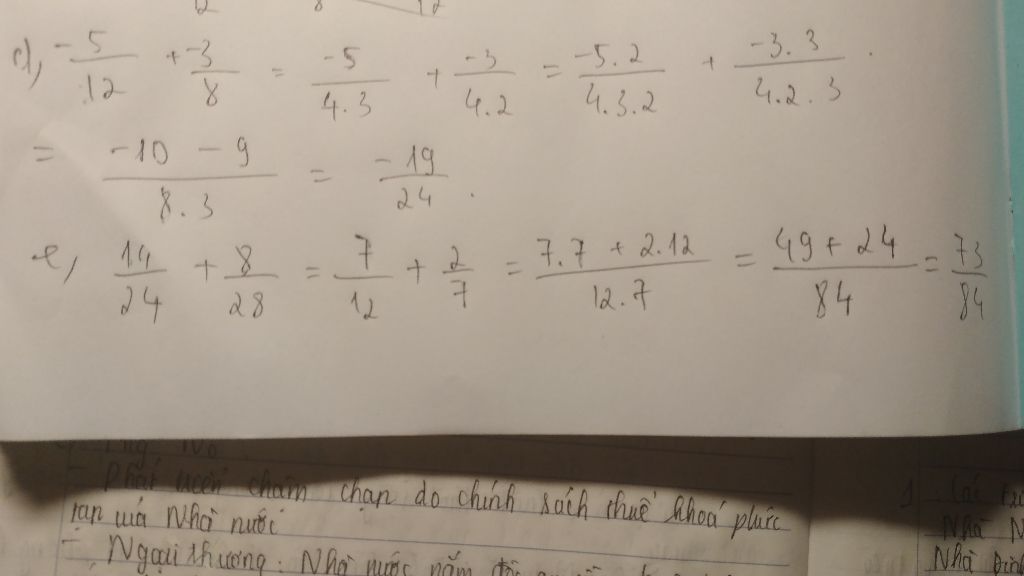 d, -5/12 + -3/8 = -5/4.3 + -3/4.2 = -5.2/4.3.2 + -3.3/4.2.3
= -10 - 9/8.3 = -19/24.
e, 14/24 + 8/28 = 7/12 + 2/7 = 7.7 + 2.12/12.7 = 49 + 24/84 = 73/84
- Phát triển chậm chạp do chính sách thuế khoá phức
tạp của Nhà nước
- Ngoại thương: Nhà nước nắm
Nhà